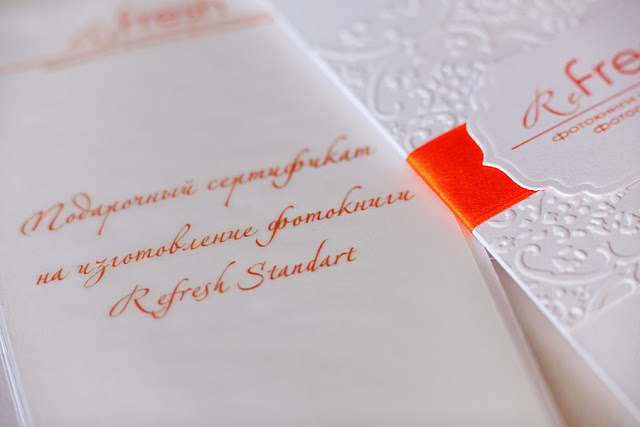 Refresh
Подарочный сертификат
на изготовление фотокниги
Refresh Standart
Refre
фотокниги
фото